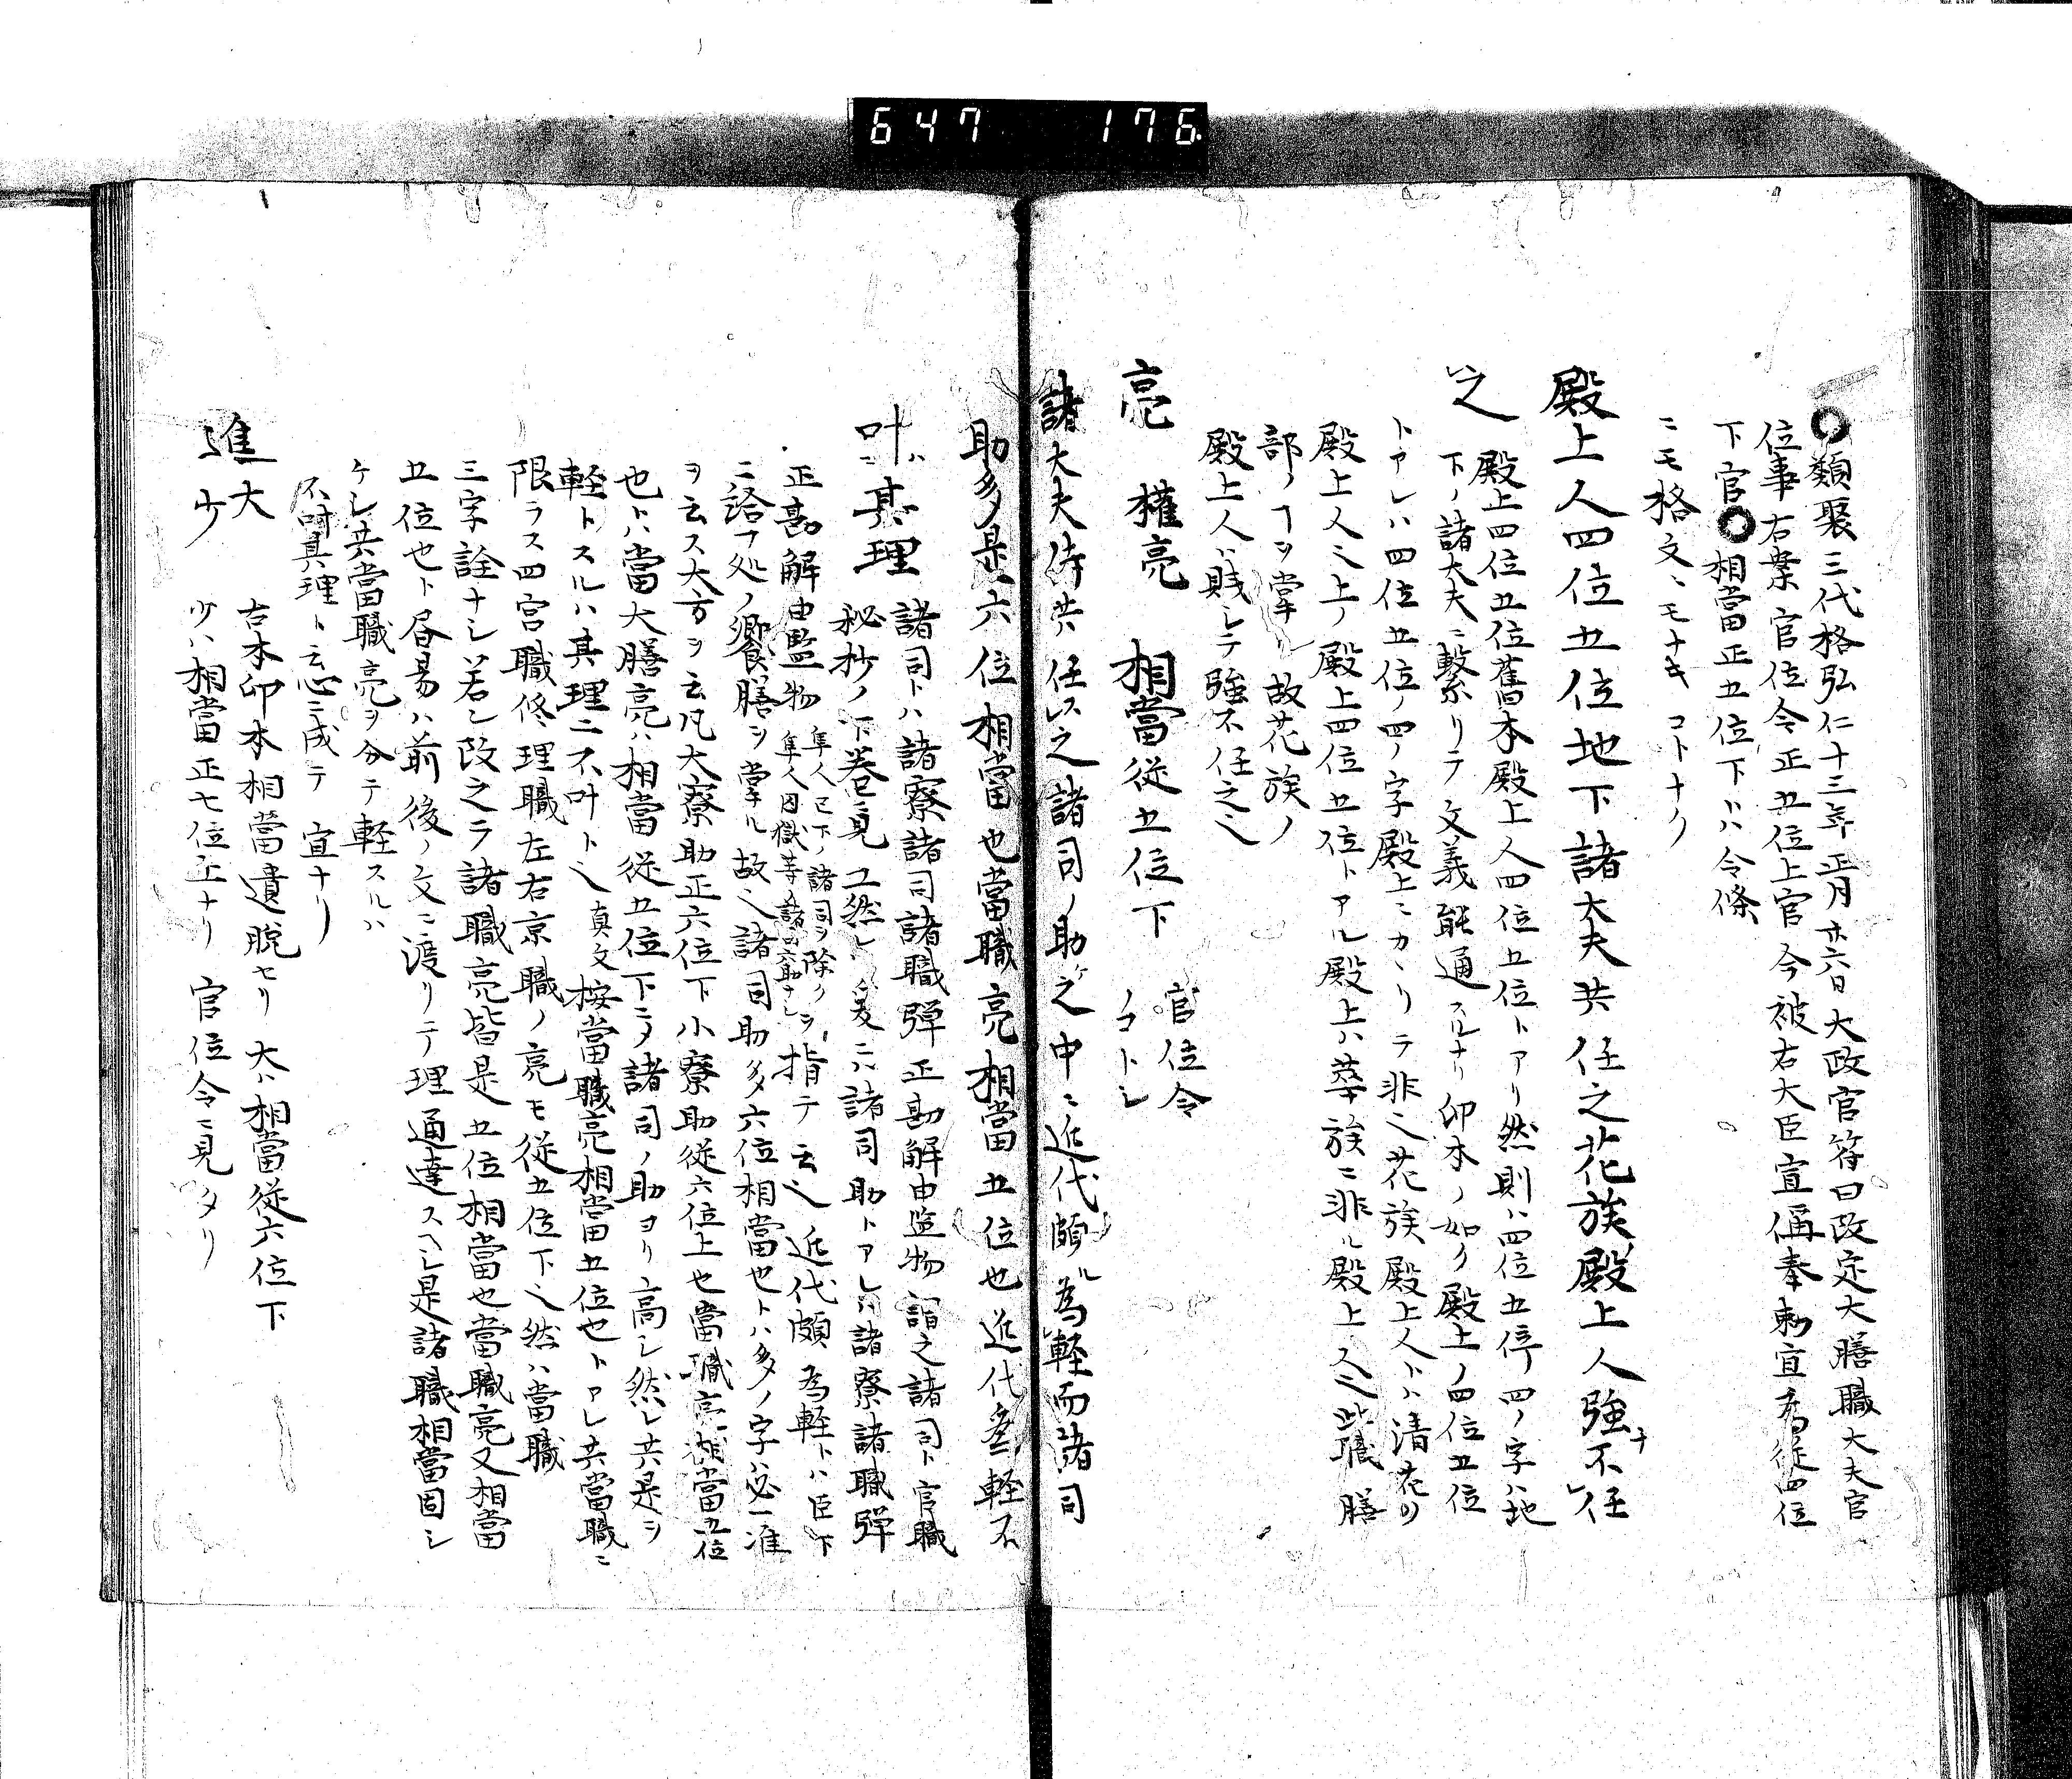 647 176
類聚三代格弘仁十三年正月廿六日大政官符曰改定大膳職大夫官
位事右案官位令正五位上官今被右大臣宣偁奉勅宜為従四位
下官〇相當正五位下ハ令條
ニモ格文ニモナキコトナリ
殿上人四位五位地下諸大夫共任之花族殿上人強不任
之
殿上四位五位舊本殿上人四位五位トアリ然則ハ四位五位ノ四ノ字ハ地
下ノ諸大夫ニ繋リテ文義能通スルナリ印本ノ如ク殿上ノ四位五位
トアレハ四位五位ノ四ノ字殿上ニカヽリテ非也花族殿上人トハ清花ノ
殿上人也上ノ殿上四位五位トアル殿上ハ華族ニ非ル殿上人也此職膳
部ノヿヲ掌ル故花族ノ
殿上人ハ賎シテ強不任之也
亮 権亮 相當従五位下 官位令
ノコトシ
諸大夫侍共任之諸司ノ助之中ニ近代頗為軽而諸司
助多是六位相當也當職亮相當五位也近代軽不
叶其理
諸司トハ諸寮諸司諸職弾正勘解由監物謂之諸司ト官職
秘抄ノ下巻ニ見ユ然レハ爰ニハ諸司助トアレハ諸寮諸職弾
正勘解由監物
隼人已下ノ諸司ヲ除クヲ
隼人囚獄等ノ諸司六助ナシ
指テ云也近代頗為軽トハ臣下
ニ詒フ処ノ饗膳ヲ掌ル故也諸司助多六位相當也トハ多ノ字ハ必一准
ヲ云ス大方ヲ云凡大寮助正六位下小寮助従六位上也當職亮相當五位
也トハ當大膳亮ハ相當従五位下ニテ諸司ノ助ヨリ高シ然レ共是ヲ
軽トスルハ其理ニ不叶ト也真文按當職亮相當五位也トアレ共當職ニ
限ラス四宮職修理職左右京職ノ亮モ従五位下也然ハ當職
三字詮ナシ若シ改之ラ諸職亮皆是五位相當也當職亮又相當
五位也ト昏易ハ前後ノ文ニ渡リテ理通達スヘシ是諸職相當固シ
ケレ共當職亮ヲ分テ軽スルハ
不叶其理ト云心ニ成テ宜ナリ
進 大
少
古本印本相當遺脱セリ大ハ相當従六位下
少ハ相當正七位上ナリ官位令ニ見タリ